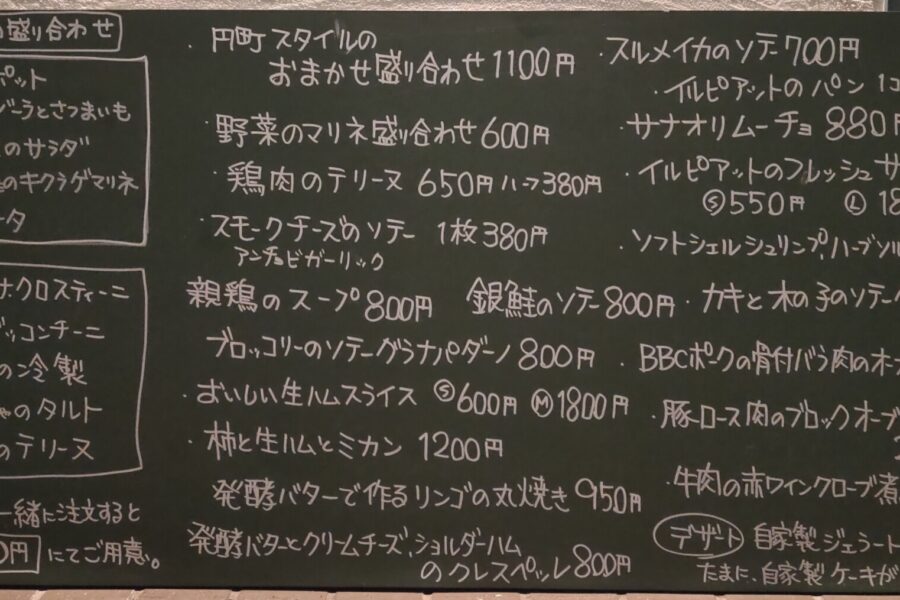 盛り合わせ
ポット
ジーラとさつまいも
のサラダ
のキクラゲマリネ
ータ
クロスティーニ
ッコンチーニ
の冷製
のタルト
のテリーヌ
一緒に注文すると
0円 にてご用意。
・円町スタイルの
おまかせ盛り合わせ 1100円
野菜のマリネ盛り合わせ 600円
・鶏肉のテリーヌ 650円 ハーフ380円
・スモークチーズのソテー 1枚380円
アンチョビガーリック
親鶏のスープ 800円 銀鮭のソテー 800円
ブロッコリーのソテーグラナパダーノ 800円
・おいしい生ハムスライス Ⓢ600円 Ⓜ1800円
・柿と生ハムとミカン 1200円
発酵バターで作るリンゴの丸焼き 950円
発酵バターとクリームチーズ、ショルダーハム
のクレスペッレ 800円
・スルメイカのソテー 700円
・イルピアットのパン 1コ
・サナオリムーチョ 880円
・イルピアットのフレッシュサ
Ⓢ550円 Ⓛ18
・ソフトシェルシュリンプ、ハーブソル
・カキと木の子のソテー
・BBCポークの骨付バラ肉のオーブ
・豚ロース肉のブロックオーブ
・牛肉の赤ワインクローブ煮
デザート 自家製ジェラート
たまに、自家製ケーキが